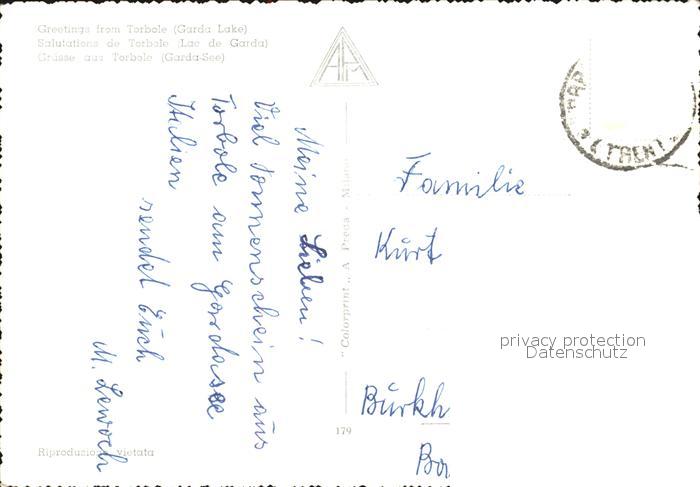 Greetings from Torbole (Garda Lake)
Salutations de Torbole (Lac de Garda)
Grüsse aus Torbole (Garda-See)
Meine Lieben!
Viel Sonnenschein aus
Torbole am Gardasee
Italien
sendet Euch
M. Lewoch
Riproduzione vietata
"Colorprint" A. Preda - Milano
179
Familie
Kurt
privacy protection
Datenschutz
Burkh